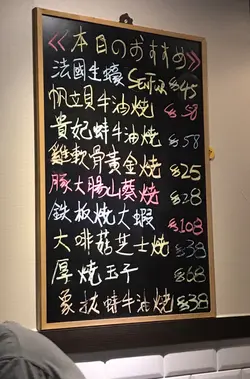 本日のおすすめ
法國生蠔 $45
帆立貝牛油燒 $58
貴妃蚌牛油燒 $58
雞軟骨黃金燒 $25
豚大腸山葵燒 $28
鉄板燒大蝦 $108
大啡菇芝士燒 $38
厚燒玉子 $68
象拔蚌牛油燒 $38